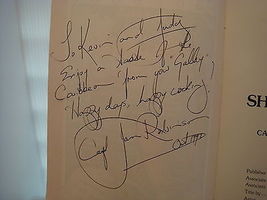 "To Kevin" and Judy
Enjoy a taste of the
Caribbean from your "Galley"
"Happy days, happy cooking"
Cap Jan Robinson
Oct
SH
CA
Published
Associate
Associate
Title by